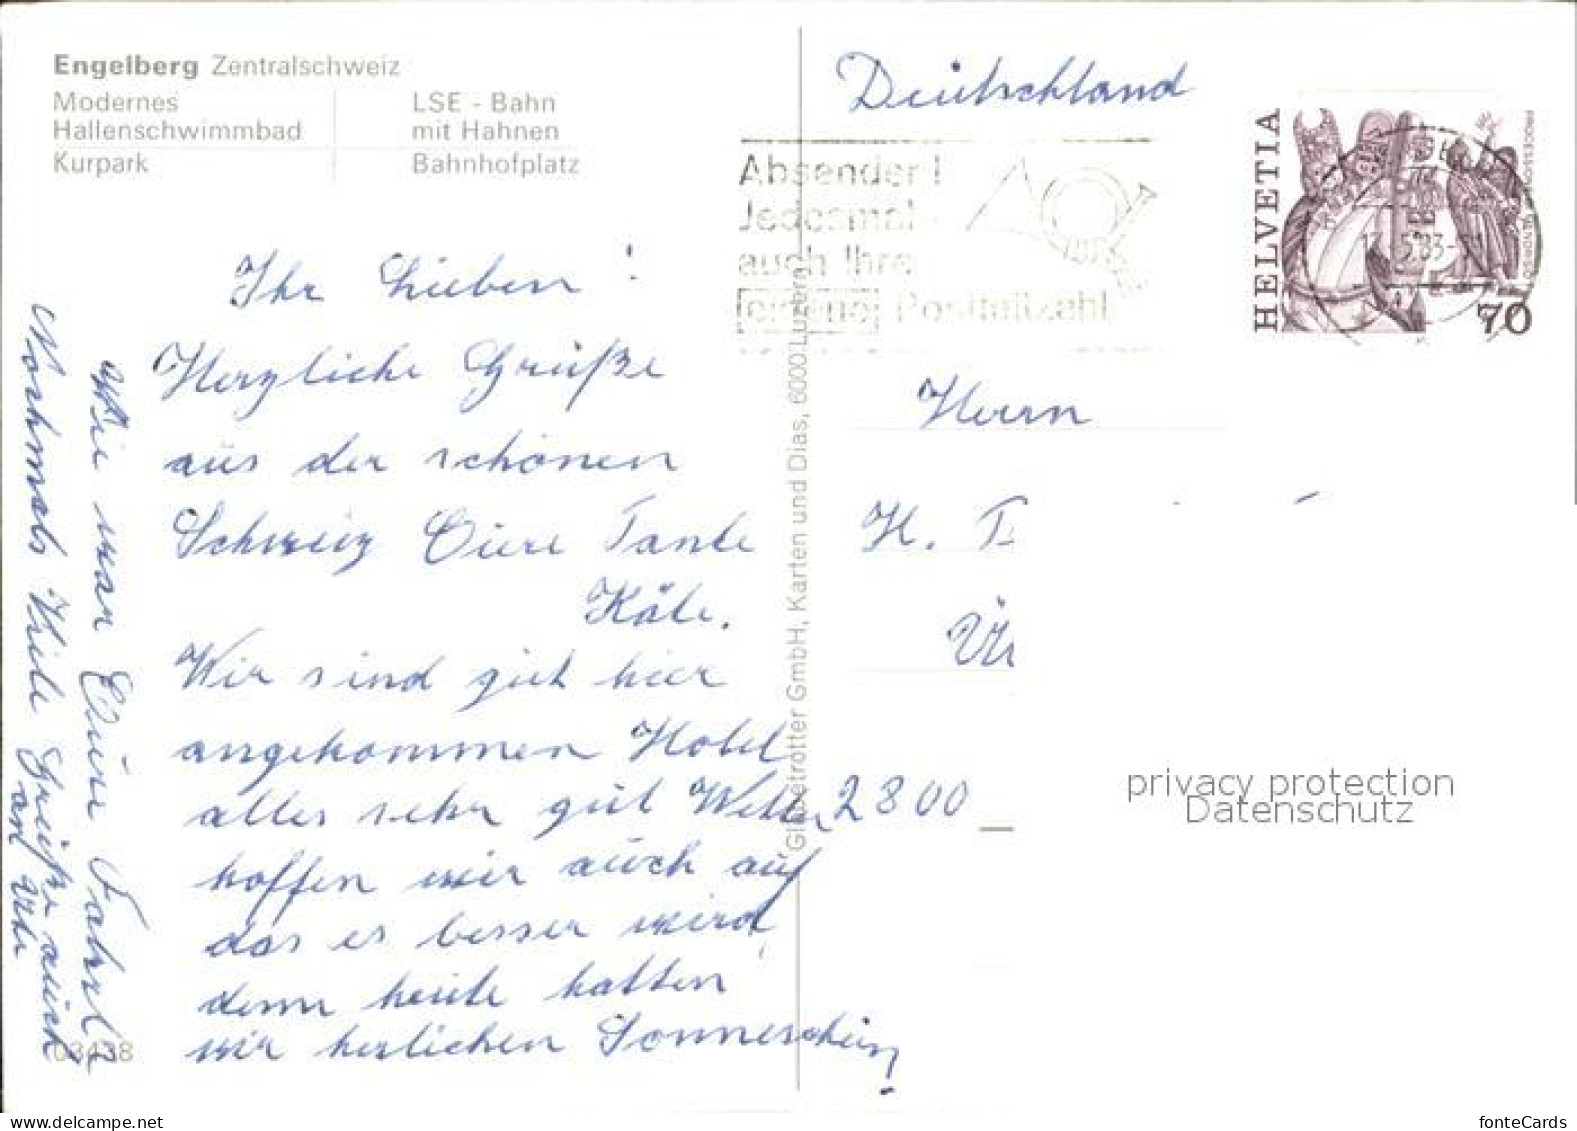 Engelberg Zentralschweiz
Modernes
Hallenschwimmbad
LSE - Bahn
mit Hahnen
Kurpark
Bahnhofplatz
Deutschland
Absender!
auch Ihre
eigene Postleitzahl
HELVETIA
70
Ihr Lieben!
Herzliche Grüße
aus der schönen
Schweiz Eure Tante
Käte.
Wir sind gut hier
angekommen Hotel
alles sehr gut Wetter
hoffen wir auch auf
das es besser wird,
denn heute hatten
wir herlichen Sonnenschein,
Wie war Eure Fahrt
Nochmals Viele Grüße auch
Herrn
H.
2800
Globetrotter GmbH, Karten und Dias, 6000 Luzern
03438
privacy protection
Datenschutz
www.delcampe.net
fonteCards